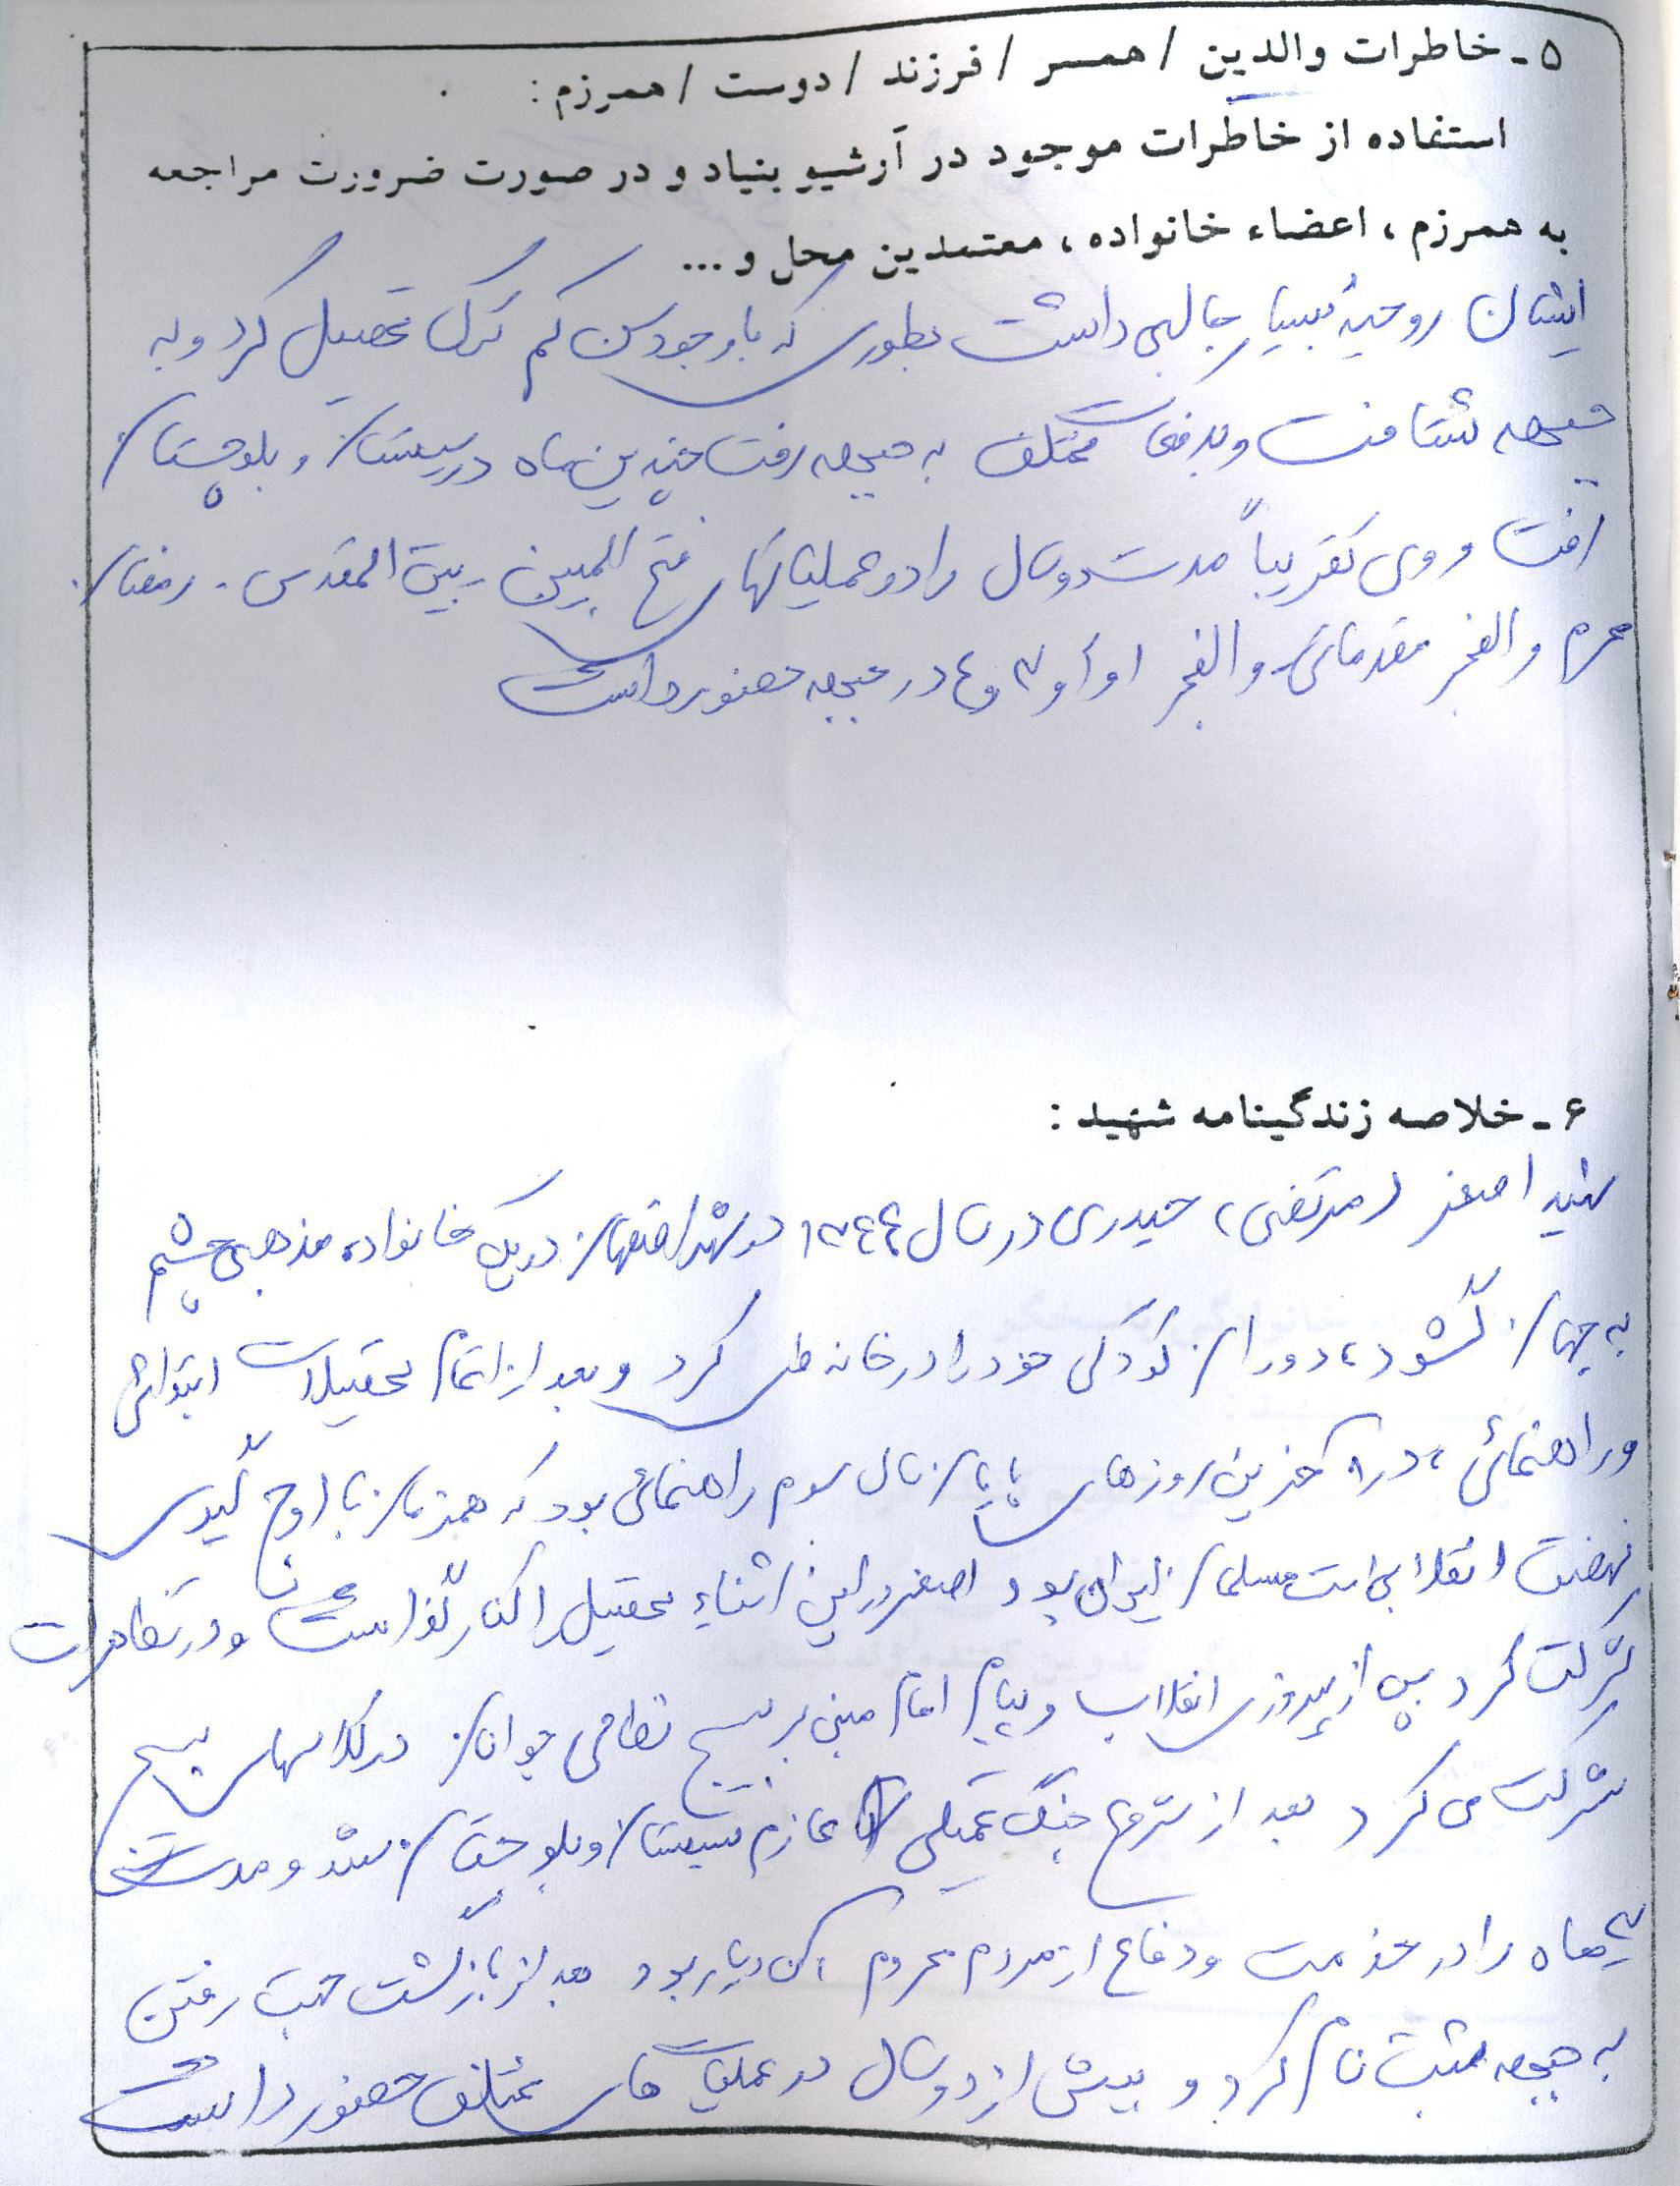 ۵ - خاطرات والدین / همسر / فرزند / دوست / همرزم :
استفاده از خاطرات موجود در آرشیو بنیاد و در صورت ضرورت مراجعه
به همرزم ، اعضاء خانواده ، معتمدین محل و ...
ایشان روحیهٔ بسیار جالبی داشت بطوری که با وجود سن کم ترک تحصیل کرد و به
جبهه شتافت و بدفعات مختلف به جبهه رفت چندین ماه در سیستان و بلوچستان
رفت و وی تقریباً مدت دو سال را در عملیاتهای فتح المبین - بیت المقدس - رمضان .
محرم والفجر مقدماتی والفجر ۱ و ۲ و ۳ و ۴ در جبهه حضور داشت
۶ - خلاصه زندگینامه شهید :
شهید اصغر (مرتضی) حیدری در سال ۱۳۴۴ در شهر اصفهان در یک خانواده مذهبی چشم
به جهان گشود ، دوران کودکی خود را در خانه طی کرد و بعد از اتمام تحصیلات ابتدائی
و راهنمائی ، در آخرین روزهای پایان سال سوم راهنمائی بود که همزمان با اوج گیری
نهضت انقلابی امت مسلمان ایران بود اصغر در این اثناء تحصیل را کنار گذاشت و در تظاهرات
شرکت کرد پس از پیروزی انقلاب و پیام امام مبنی بر بسیج نظامی جوانان در کلاسهای بسیج
شرکت می کرد بعد از شروع جنگ تحمیلی عازم سیستان و بلوچستان شد و مدت
۳ ماه را در خدمت و دفاع از مردم محروم آن دیار بود بعد از بازگشت جهت رفتن
به جبهه ثبت نام کرد و بیش از دو سال در عملیات های مختلف حضور داشت